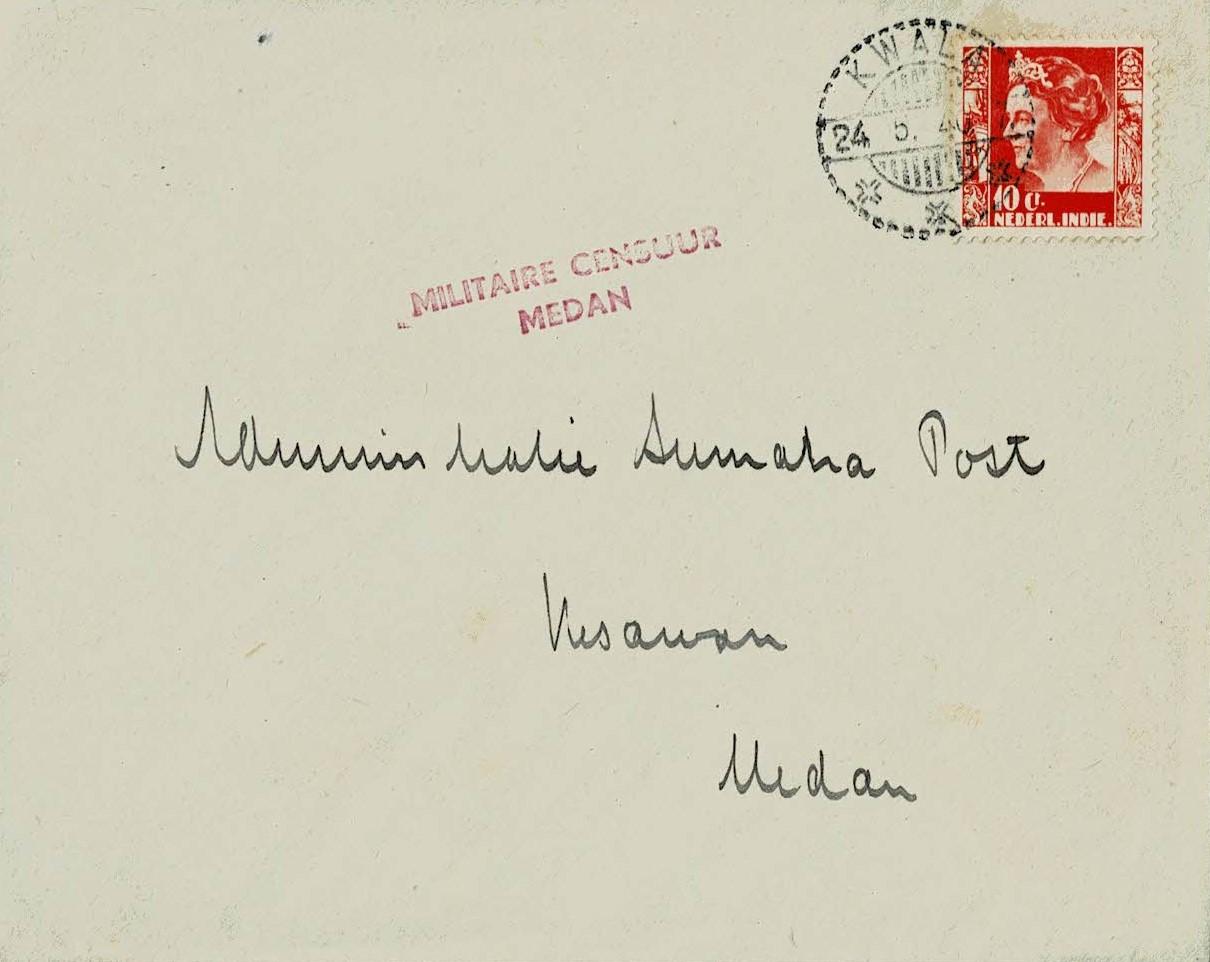 KWALA
24 5. 40
10 Ct.
NEDERL. INDIE.
MILITAIRE CENSUUR
MEDAN
Administratie Sumatra Post
Kesawan
Medan